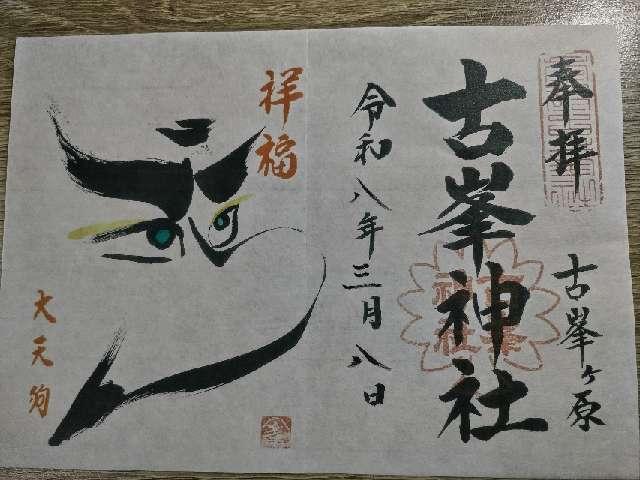 奉拝
古峯ヶ原
古峯神社
令和八年三月八日
祥福
大天狗